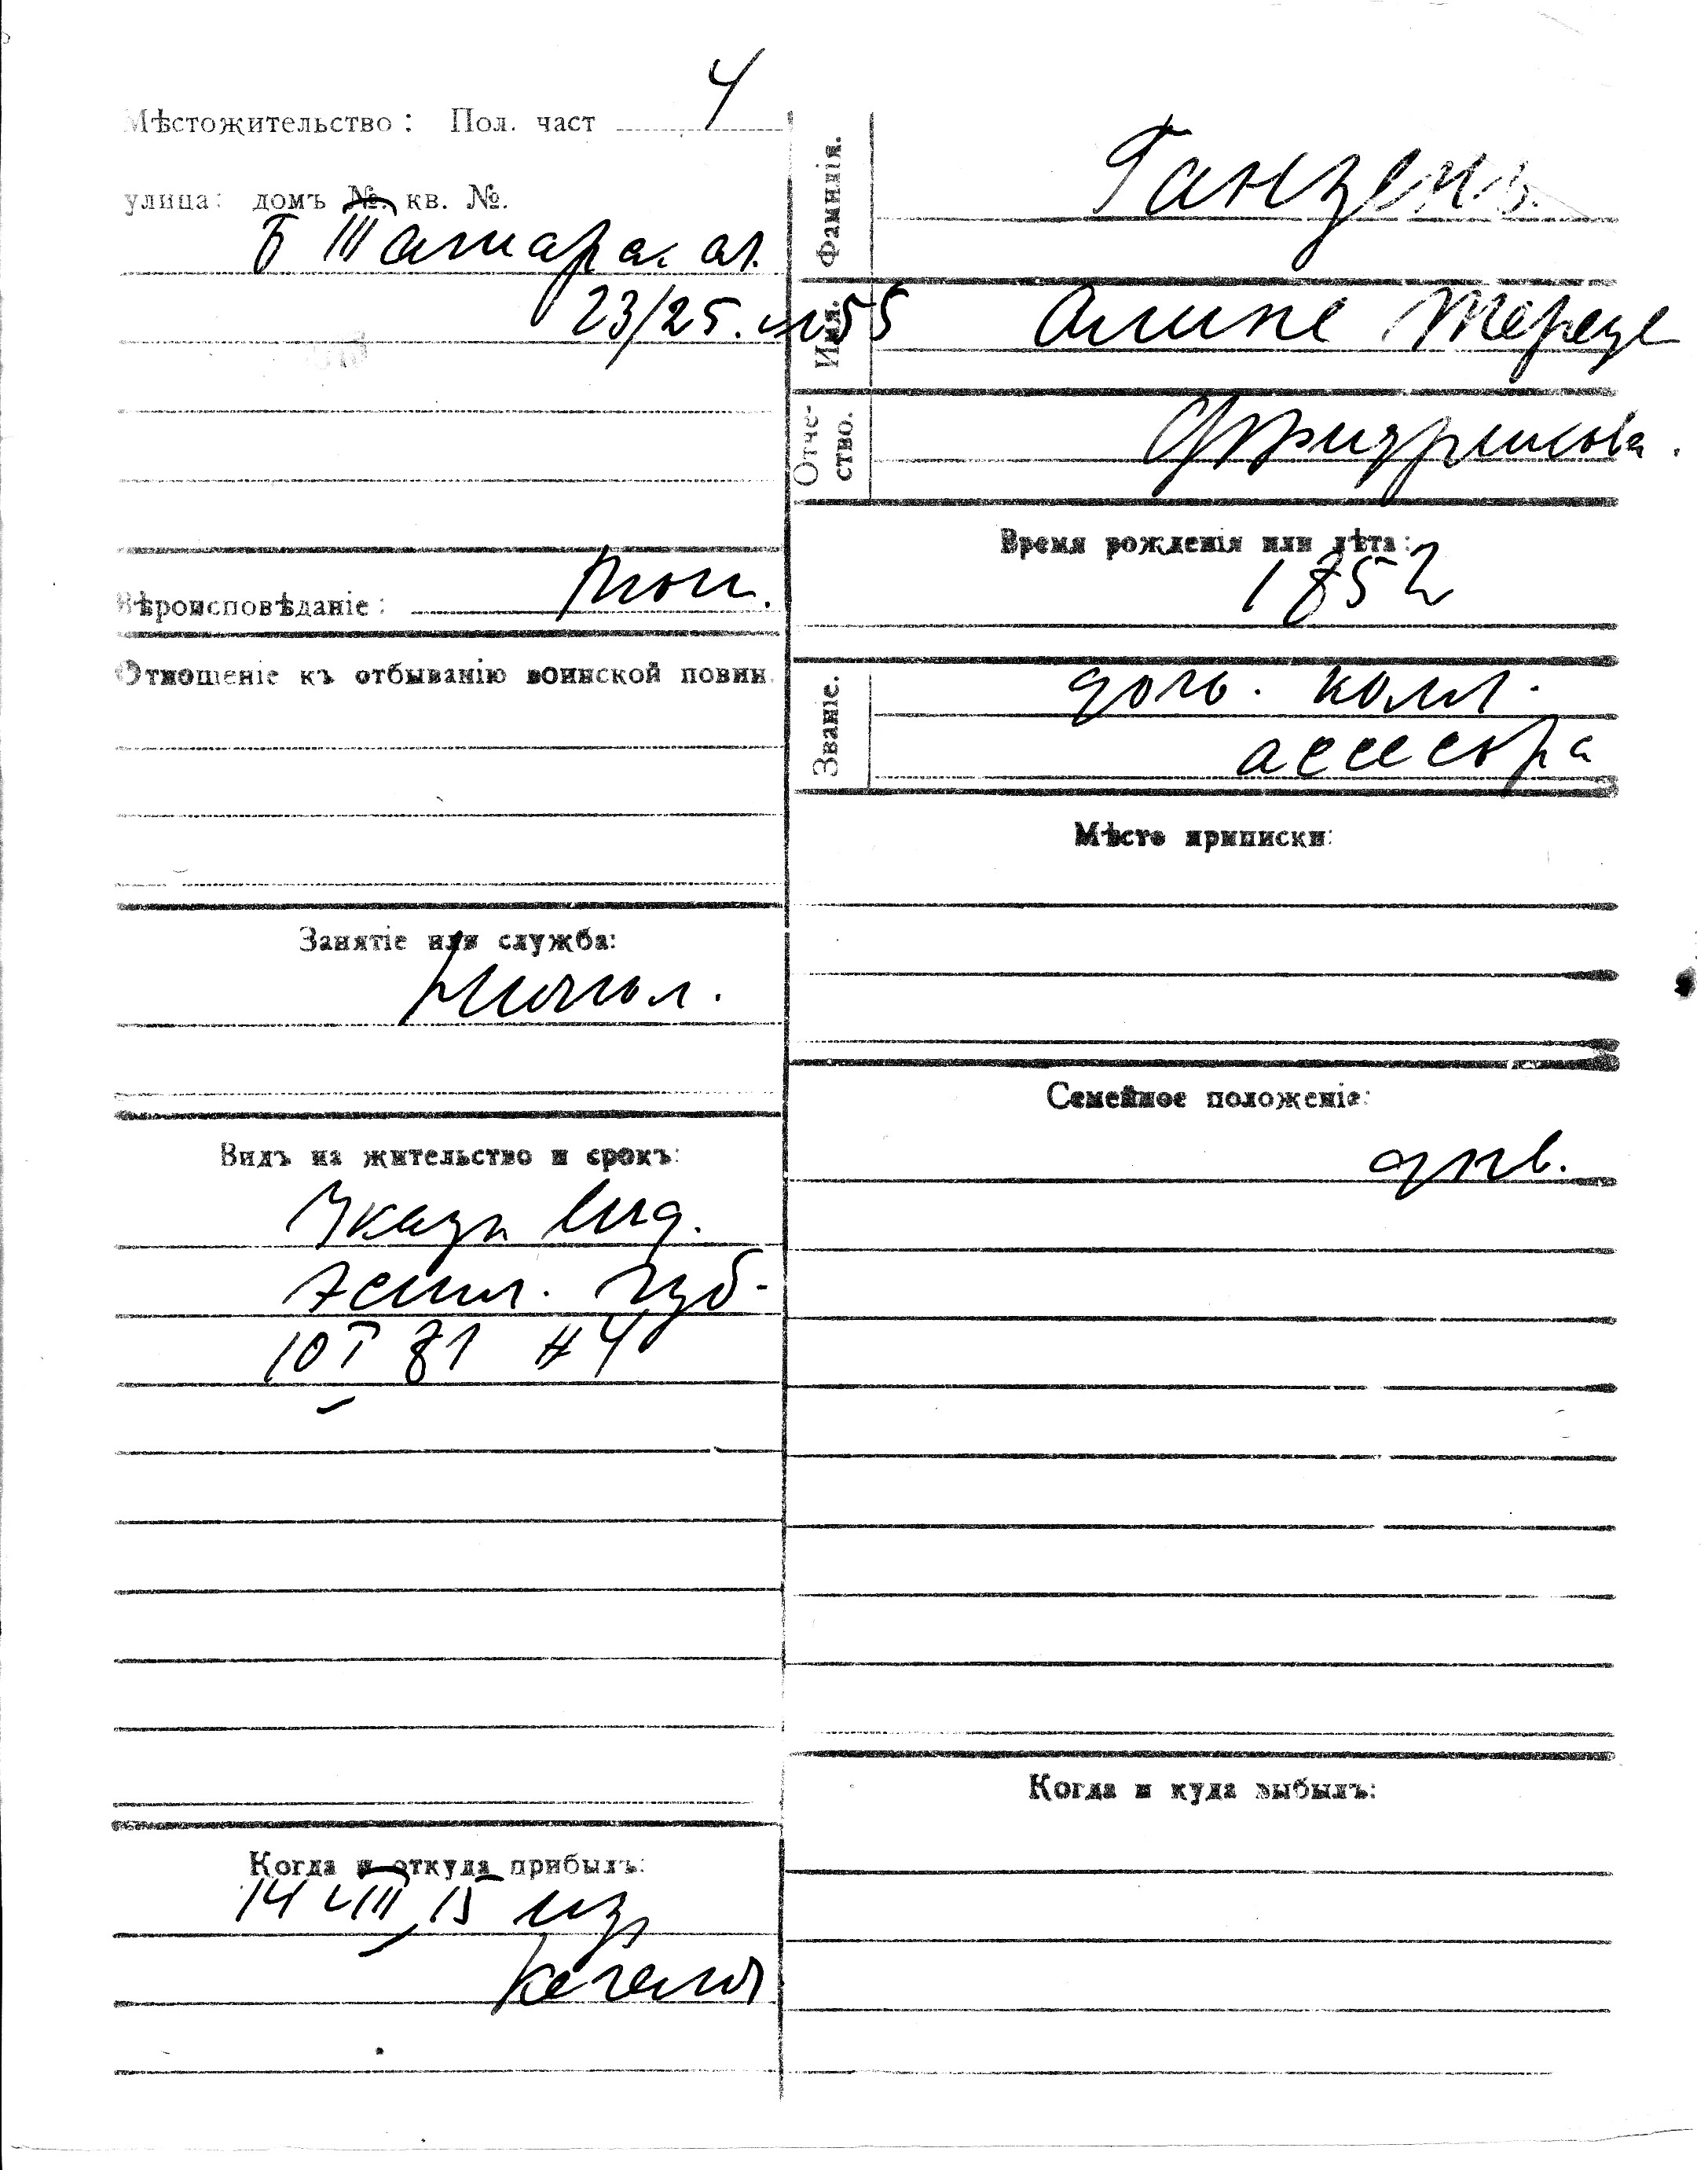 Мѣстожительство: Пол. част 4
улица: домъ №. кв. №.
Б Татарс. ал.
23/25. м 55
Вѣроисповѣданіе: лют.
Отношеніе къ отбыванію воинской повин.
Занятіе или служба:
Видъ на жительство и срокъ:
Указъ выд.
Эстл. губ.
10 I 81 # 4
Когда и откуда прибылъ:
14 VIII 15 изъ
Кегеля
Фамилія. Ганзенъ
Имя. Алине Терезе
Отчество. Фридрихова.
Время рожденія или лѣта:
1852
Званіе. дочь. колл.
ассесора
Мѣсто приписки:
Семейное положеніе:
дѣв.
Когда и куда выбылъ: